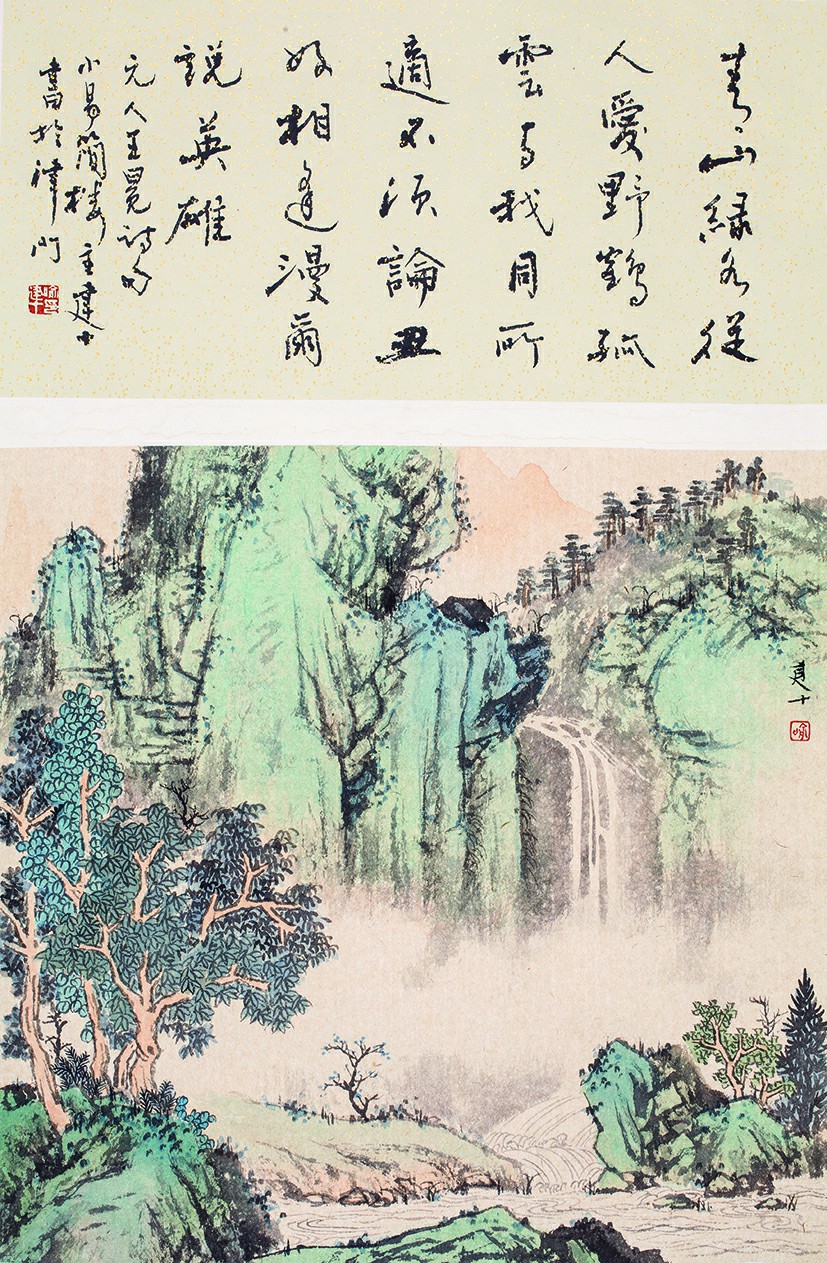 青山緑水從
人愛野鶴孤
雲与我同所
適不須論丑
好相逢漫爾
説英雄
元人王冕詩句
小易簡樓主建十
書於津門
建十
喻